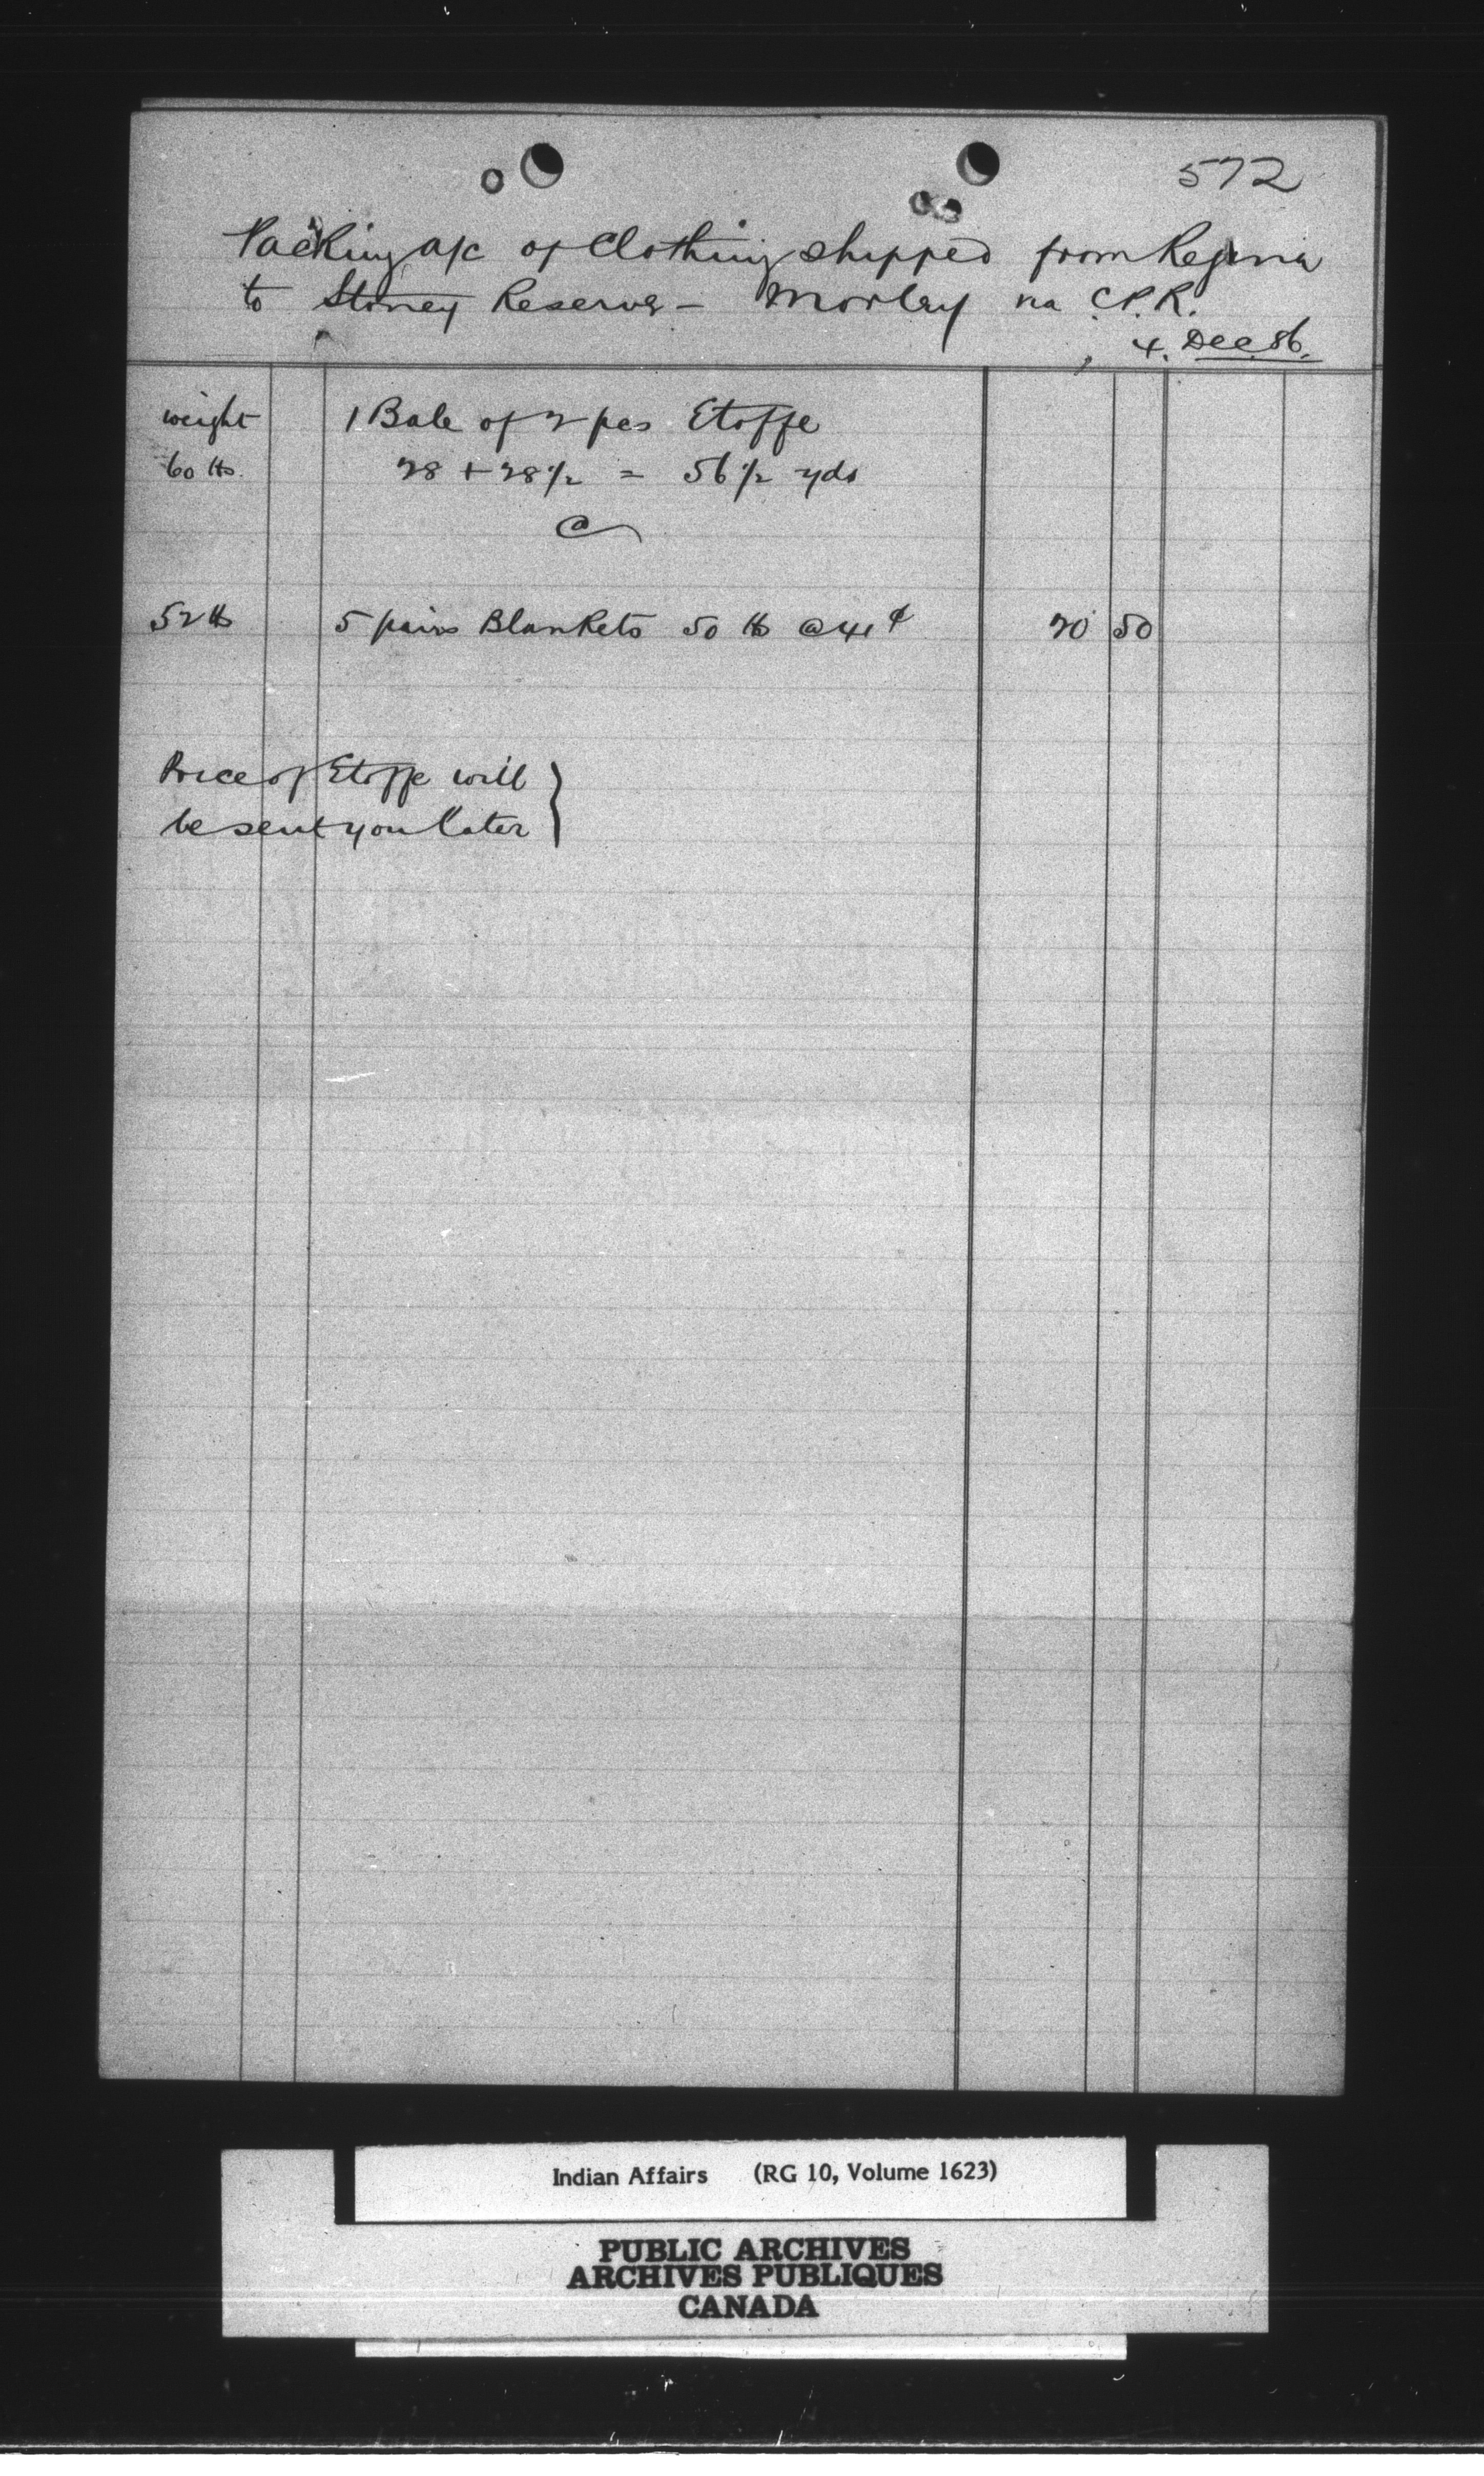 572
Packing a/c of Clothing shipped from Regina
to Stoney Reserve - Morley via C.P.R.
4. Dec 86.
weight 1 Bale of 2 pcs Etoffe
60 lbs. 28 + 28 1/2 = 56 1/2 yds
@
52 lb 5 pairs Blankets 50 lb @ 41 ¢ 20 50
Price of Etoffe will
be sent you later
Indian Affairs (RG 10, Volume 1623)
PUBLIC ARCHIVES
ARCHIVES PUBLIQUES
CANADA